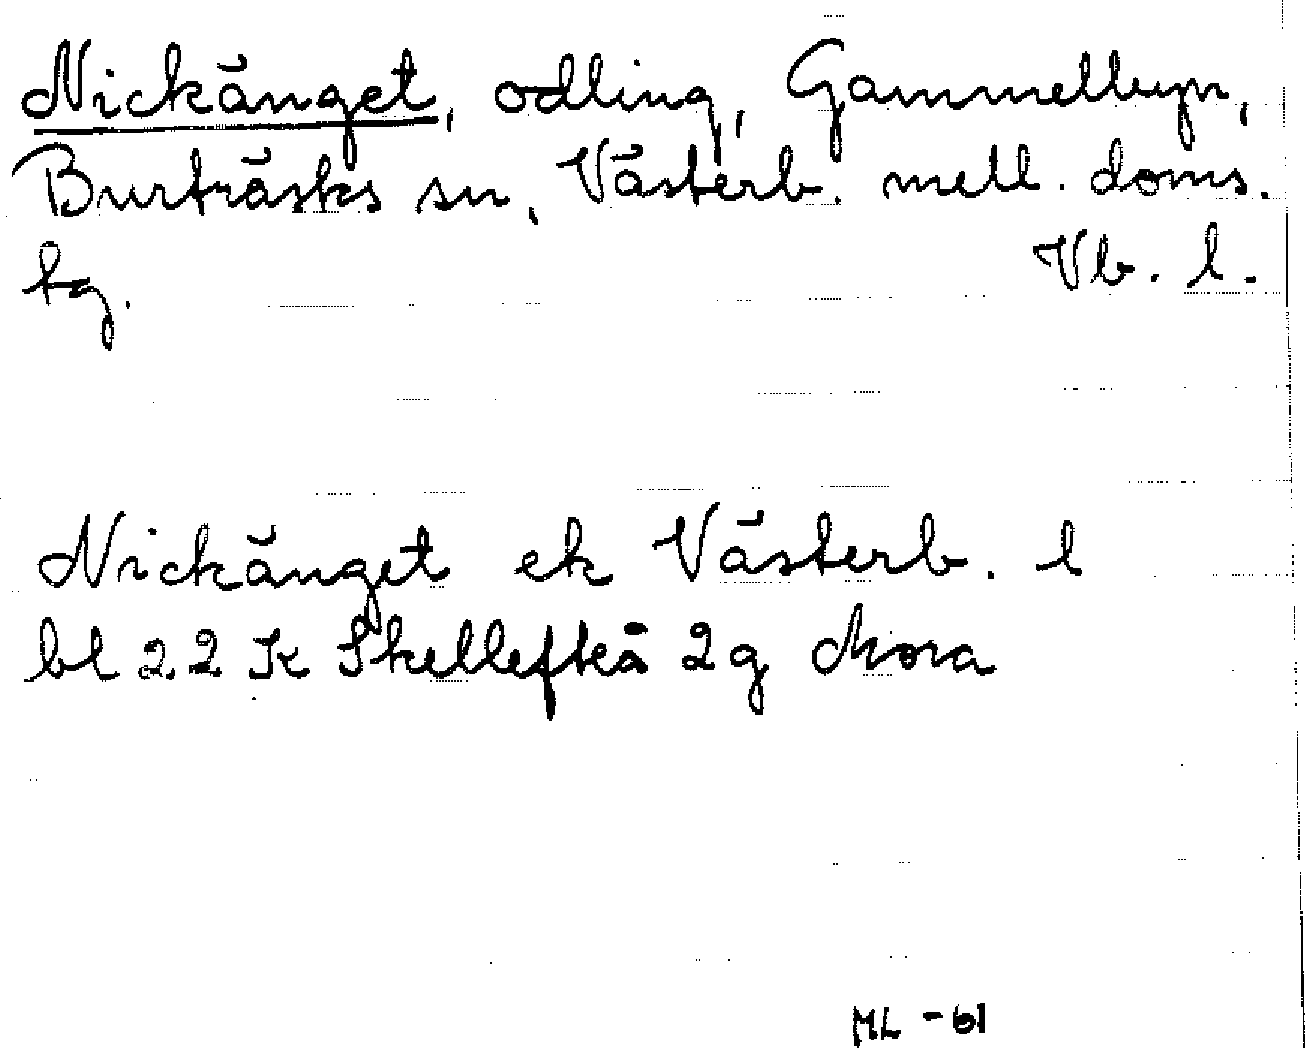 Nickänget, odling, Gammelbyn,
Burträsks sn, Västerb. mell. doms.
tg. Vb. l.
Nickänget ek Västerb. l
bl 22 K Skellefteå 2g Mora
ML -61